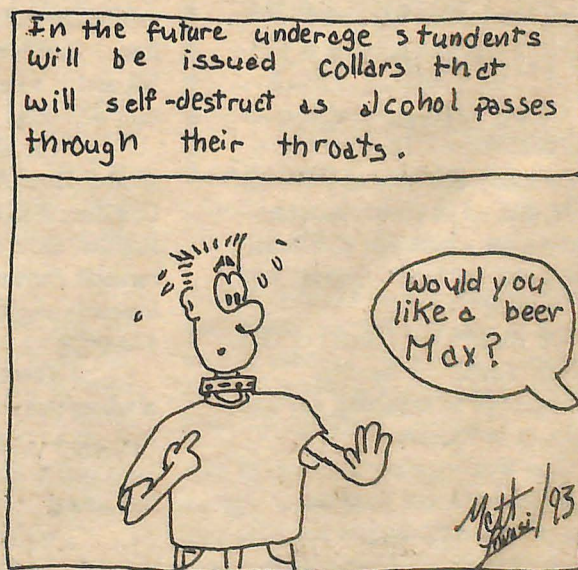 In the future underage stundents
will be issued collars that
will self-destruct as alcohol passes
through their throats.
Would you
like a beer
Max?
Matt
/93